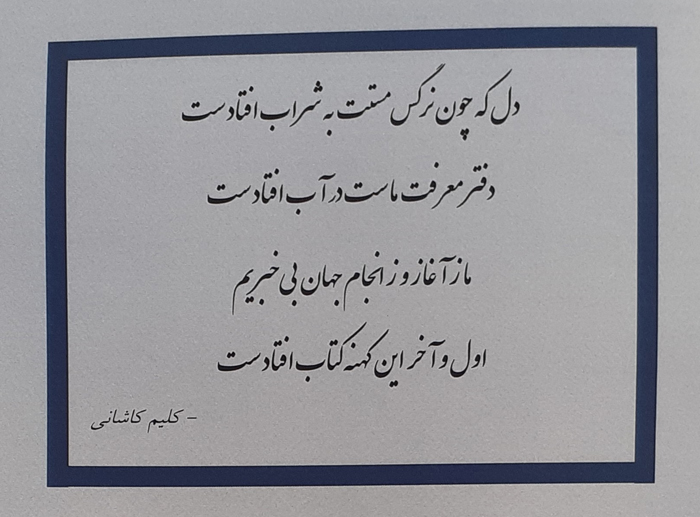 دل که چون نرگس مستت به شراب افتادست
دفتر معرفت ماست در آب افتادست
ما ز آغاز و ز انجام جهان بی خبریم
اول و آخر این کهنه کتاب افتادست
– کلیم کاشانی